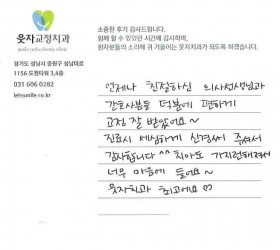 웃자교정치과
경기도 성남시 중원구 성남대로
1156 도원타워 3,4층
031 606 0282
letssmile.co.kr
소중한 후기 감사드립니다.
함께 할 수 있었던 시간에 감사하며,
환자분들의 소리에 귀 기울이는 웃자교정치과가 되도록 하겠습니다.
언제나 친절하신 의사선생님과
간호사분들 덕분에 편하게
교정 잘 받았어요~
진료시 세심하게 신경써 주셔서
감사합니다^^ 치아도 가지런해져서
너무 마음에 들어요~
웃자치과 최고에요♡